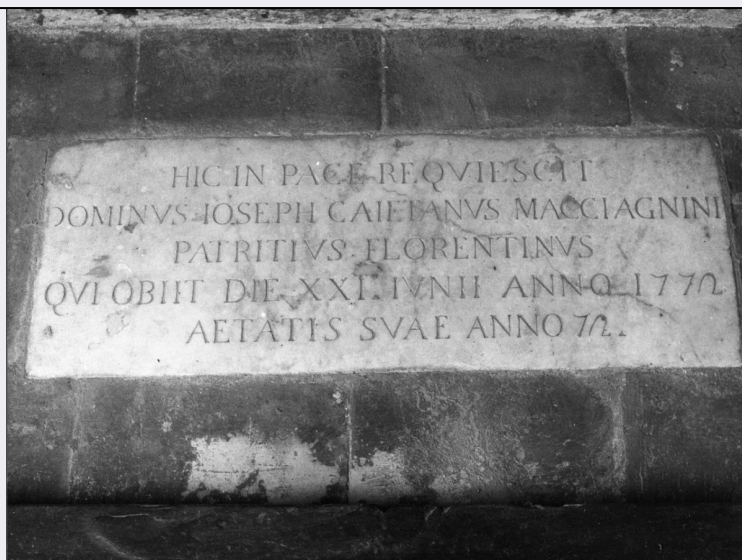 HIC IN PACE REQVIESCIT
DOMINVS IOSEPH CAIETANVS MACCIAGNINI
PATRITIVS FLORENTINVS
QVI OBIIT DIE XXI. IVNII ANNO 1772
AETATIS SVAE ANNO 72.